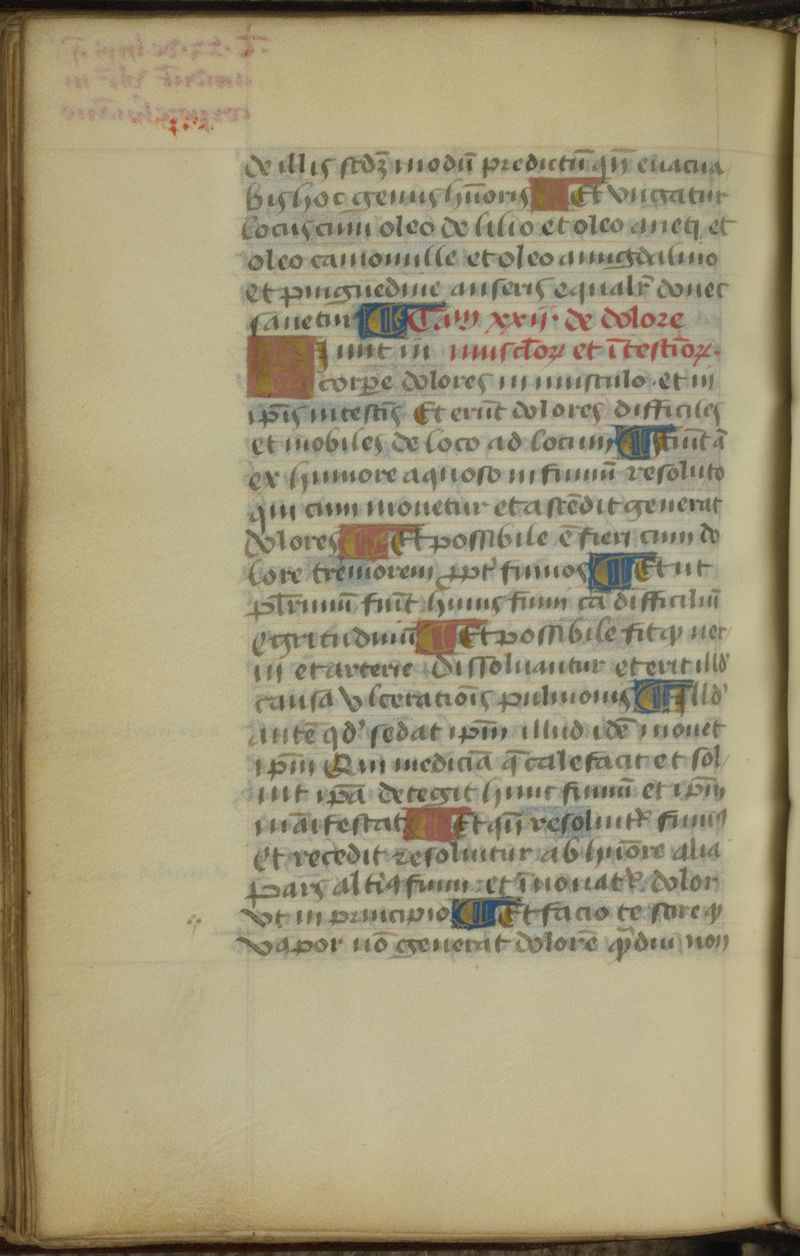 de illis scdʒ modū predictū qn̄ euacua
bis hoc genus hūoris Et vngatur
locus cum oleo de lilio et oleo aneti et
oleo camomille et oleo amigdalino
et pinguedine anseris equalr̄ donec
sanetur Cam xxii· de dolore
musclo℞ et ītestīo℞·
Fiunt in
corpe dolores in musculo et in
ip̄is intestis Et erūt dolores difficiles
et mobiles de loco ad locum fiūt ā
ex humore aquoso in fumū resoluto
qui cum mouetur et ascēdit generat
dolores Et possibile ē fieri cum do
lore tremorem ꝓpt' fumos Et ut
pl̄rimum fiūt huius fumi cā difficiliū
egritudinū Et possibile fit ꝙ ner
ui et arterie dissoluantur et erit illd'
causa vlceratiōis pulmonis Illd'
autē qd' sedat ip̄m illud idē mouet
ip̄m Qm medicīa q̄ calefacit et sol
uit ip̄a detegit hunc fumū et ip̄m
māifestat Et qn̄ resoluit͛ fumꝯ
Et recedit resoluitur ab hūore alia
pars altiꝯ fumi et īnouat͛ dolor
vt in principio Et facio te scire ꝙ
vapor nō generat dolorē qͣdiu non